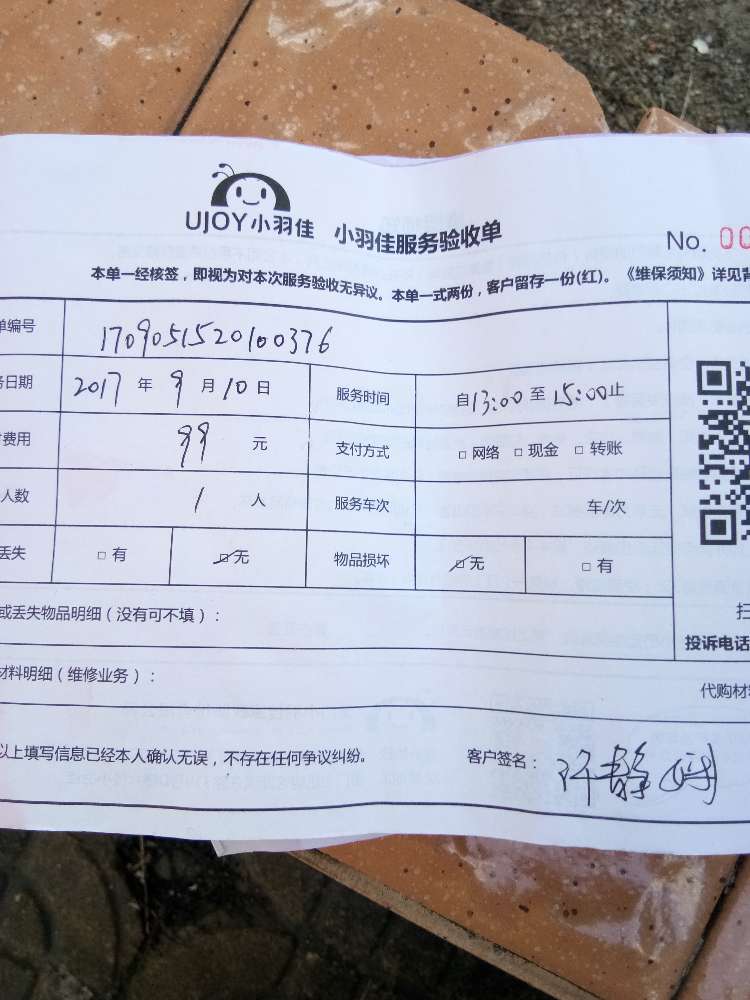 UJOY小羽佳 小羽佳服务验收单
No. 00
本单一经核签，即视为对本次服务验收无异议。本单一式两份，客户留存一份(红)。《维保须知》详见背
单编号 1709051520100376
务日期 2017 年 9 月 10 日 服务时间 自13:00 至 15:00止
费用 99 元 支付方式 □ 网络 □ 现金 □ 转账
人数 1 人 服务车次 车/次
丢失 □ 有 ☑无 物品损坏 ☑无 □ 有
或丢失物品明细（没有可不填）：
投诉电话
材料明细（维修业务）：
代购材
以上填写信息已经本人确认无误，不存在任何争议纠纷。 客户签名： 许静